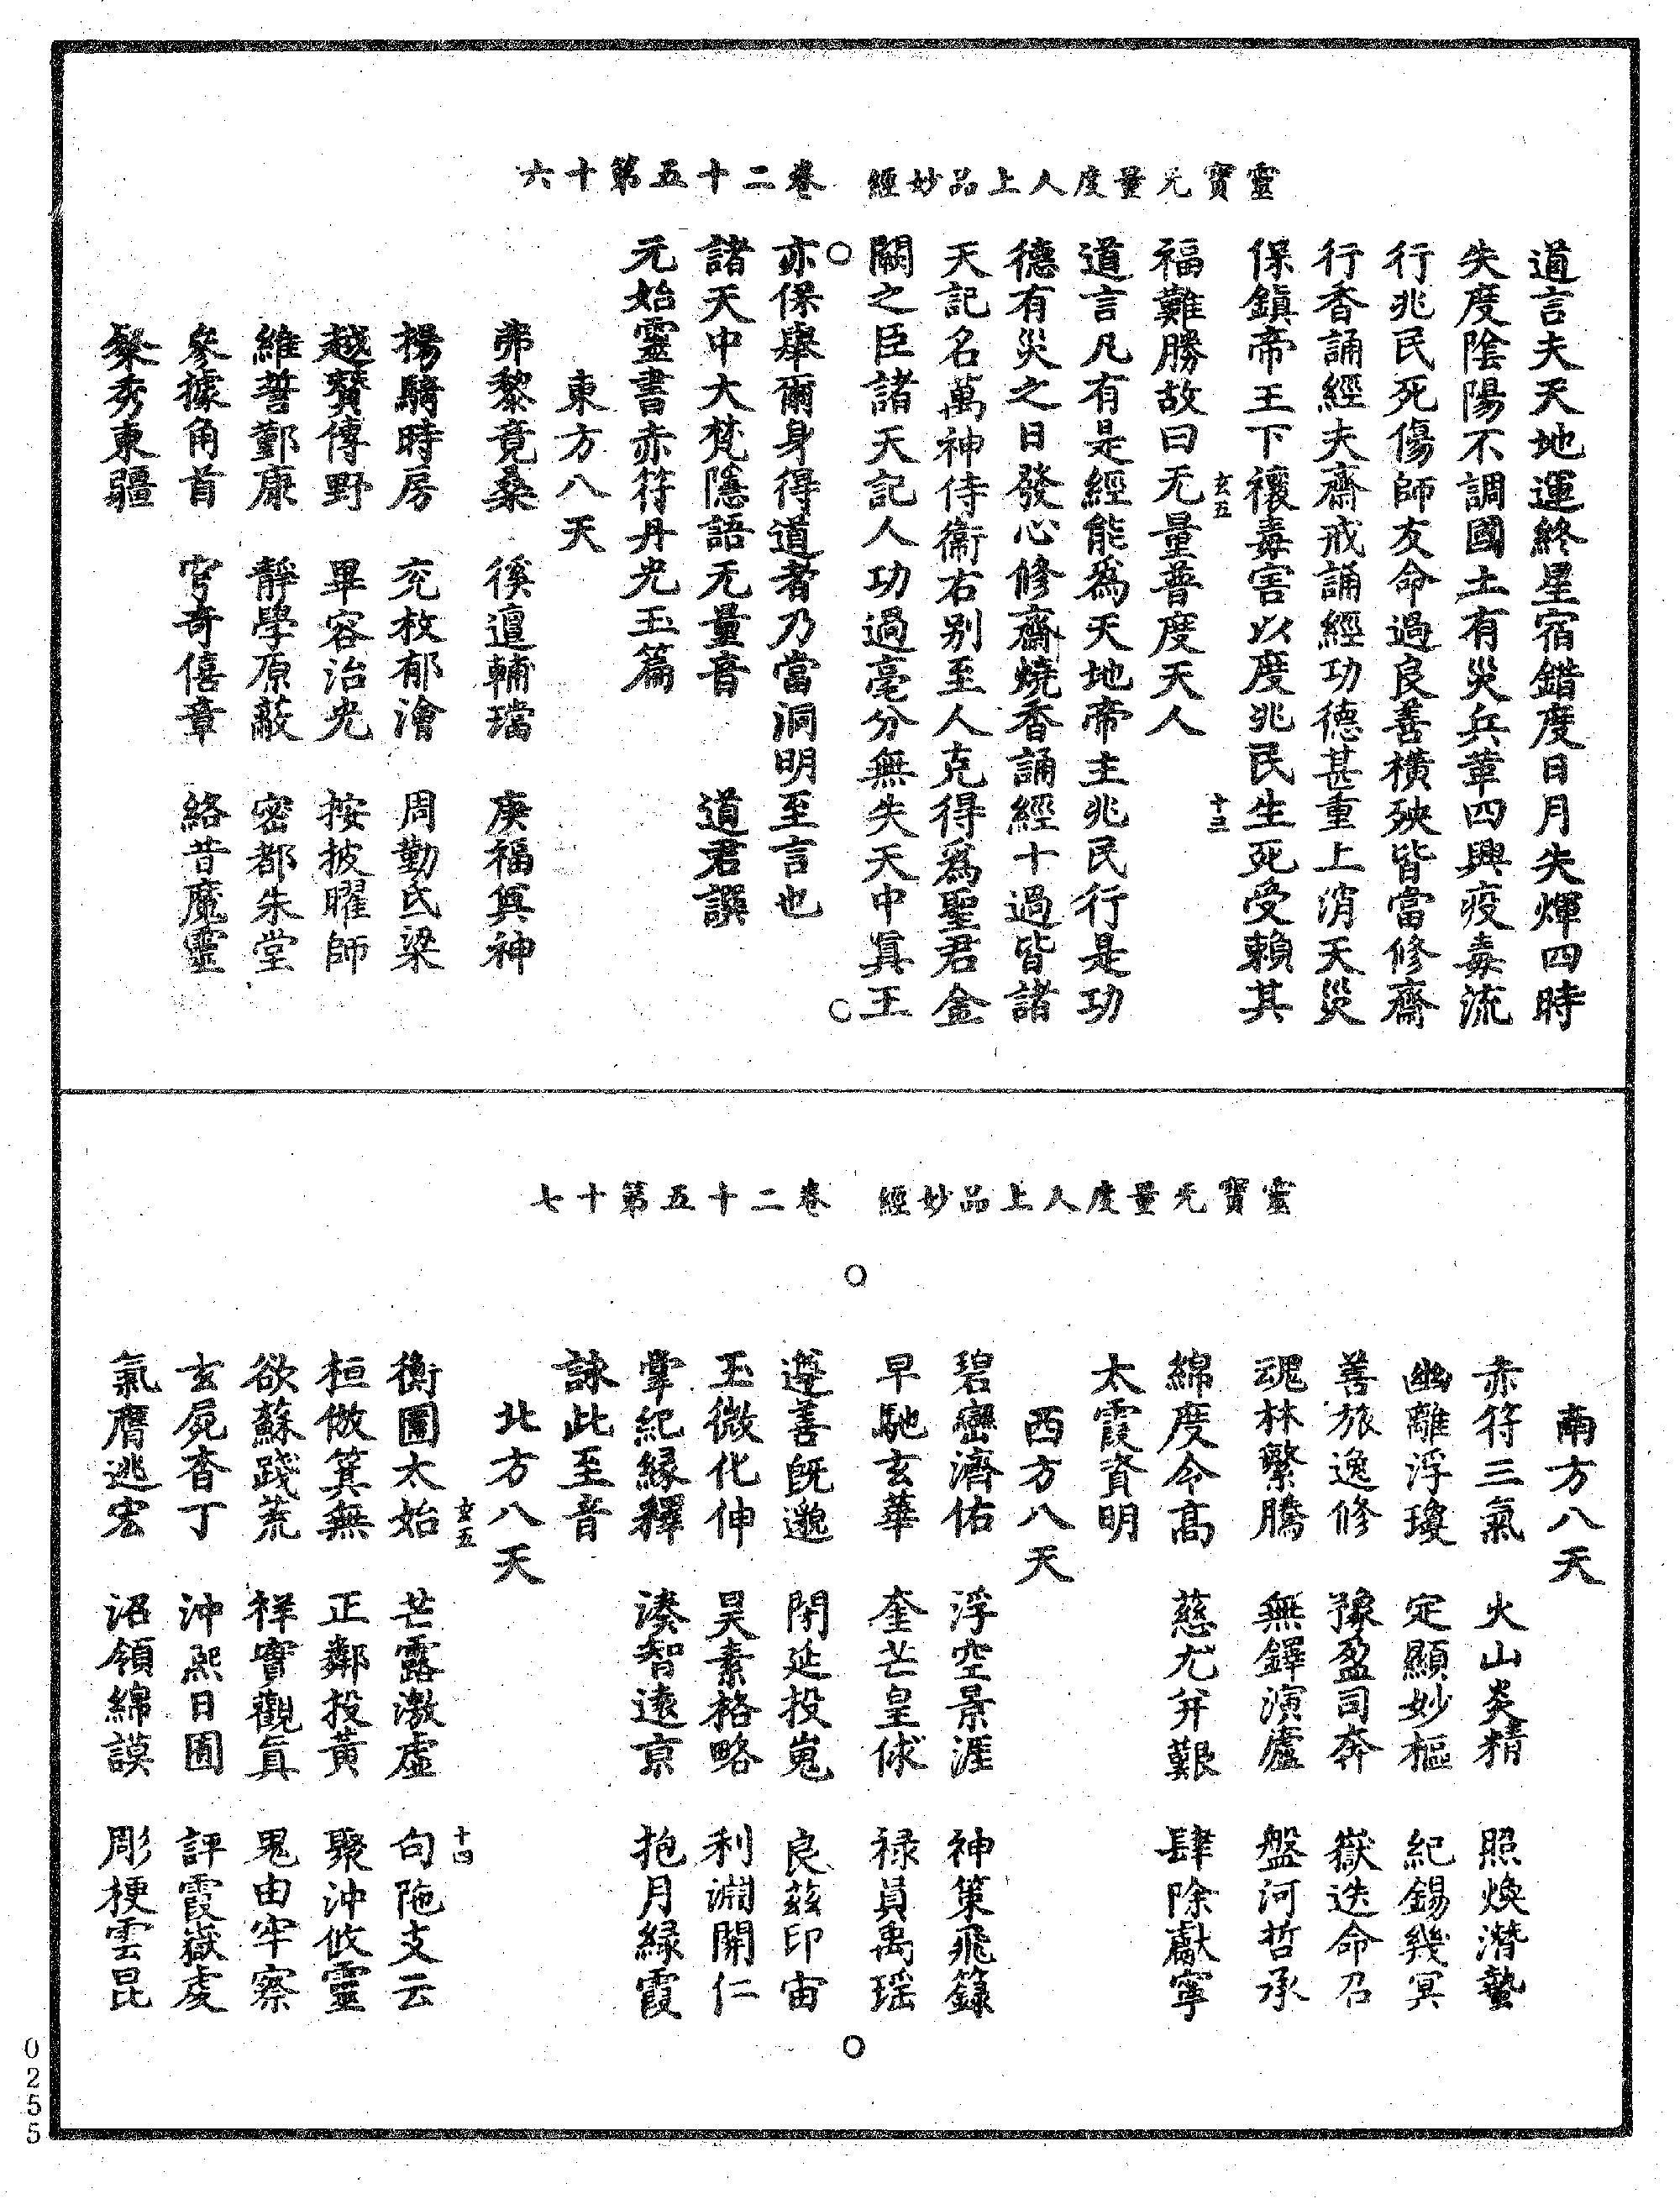 靈寶无量度人上品妙經　卷二十五第十六
道言夫天地運終星宿錯度日月失輝四時
失度陰陽不調國土有災兵革四興疫毒流
行兆民死傷師友命過良善橫殃皆當修齋
行香誦經夫齋戒誦經功德甚重上消天災
保鎮帝王下禳毒害以度兆民生死受賴其
玄五　十三
福難勝故曰无量普度天人
道言凡有是經能爲天地帝主兆民行是功
德有災之日發心修齋燒香誦經十過皆諸
天記名萬神侍衞右别至人克得爲聖君金
闕之臣諸天記人功過毫分無失天中眞王
亦保舉爾身得道者乃當洞明至言也
諸天中大梵隱語无量音　道君譔
元始靈書赤符丹光玉篇
東方八天
弗黎竟桑　徯邅輔璫　庚福箕神
揚騎時房　兖枚郁澮　周勤氐梁
越賛傳野　畢容治光　按披曜師
維誓鄞康　靜學原蔽　密都朱堂
參據角首　穹奇僖章　絡昔魔靈
粲秀東疆
靈寶无量度人上品妙經　卷二十五第十七
南方八天
赤符三氣　火山炎精　照煥潛蟄
幽離浮瓊　定顯妙樞　紀錫幾冥
善旅逸修　豫盈司奔　嶽迭命召
魂林繁騰　無鐸演廬　盤河哲承
綿度令高　慈尤弁艱　肆除獻寜
太霞資明
西方八天
碧巒濟佑　浮空景涯　神策飛籙
早馳玄華　奎芒皇俅　禄員禹瑶
遵善旣邈　閉延投嵬　良茲印宙
玉微化伸　昊素格略　利淵開仁
掌紀緣釋　湊智遠京　抱月緑霞
詠此至音
北方八天
衡圃太始　芒露激虛　句陁支云
玄五　十四
桓倣箕無　正鄰投黃　聚沖攸靈
欲蘇踐荒　祥實觀眞　鬼由牢察
玄夙杳丁　沖熙日圃　評霞嶽虔
氣膺逃宏　沼領綿謨　彫梗雲昆
0255